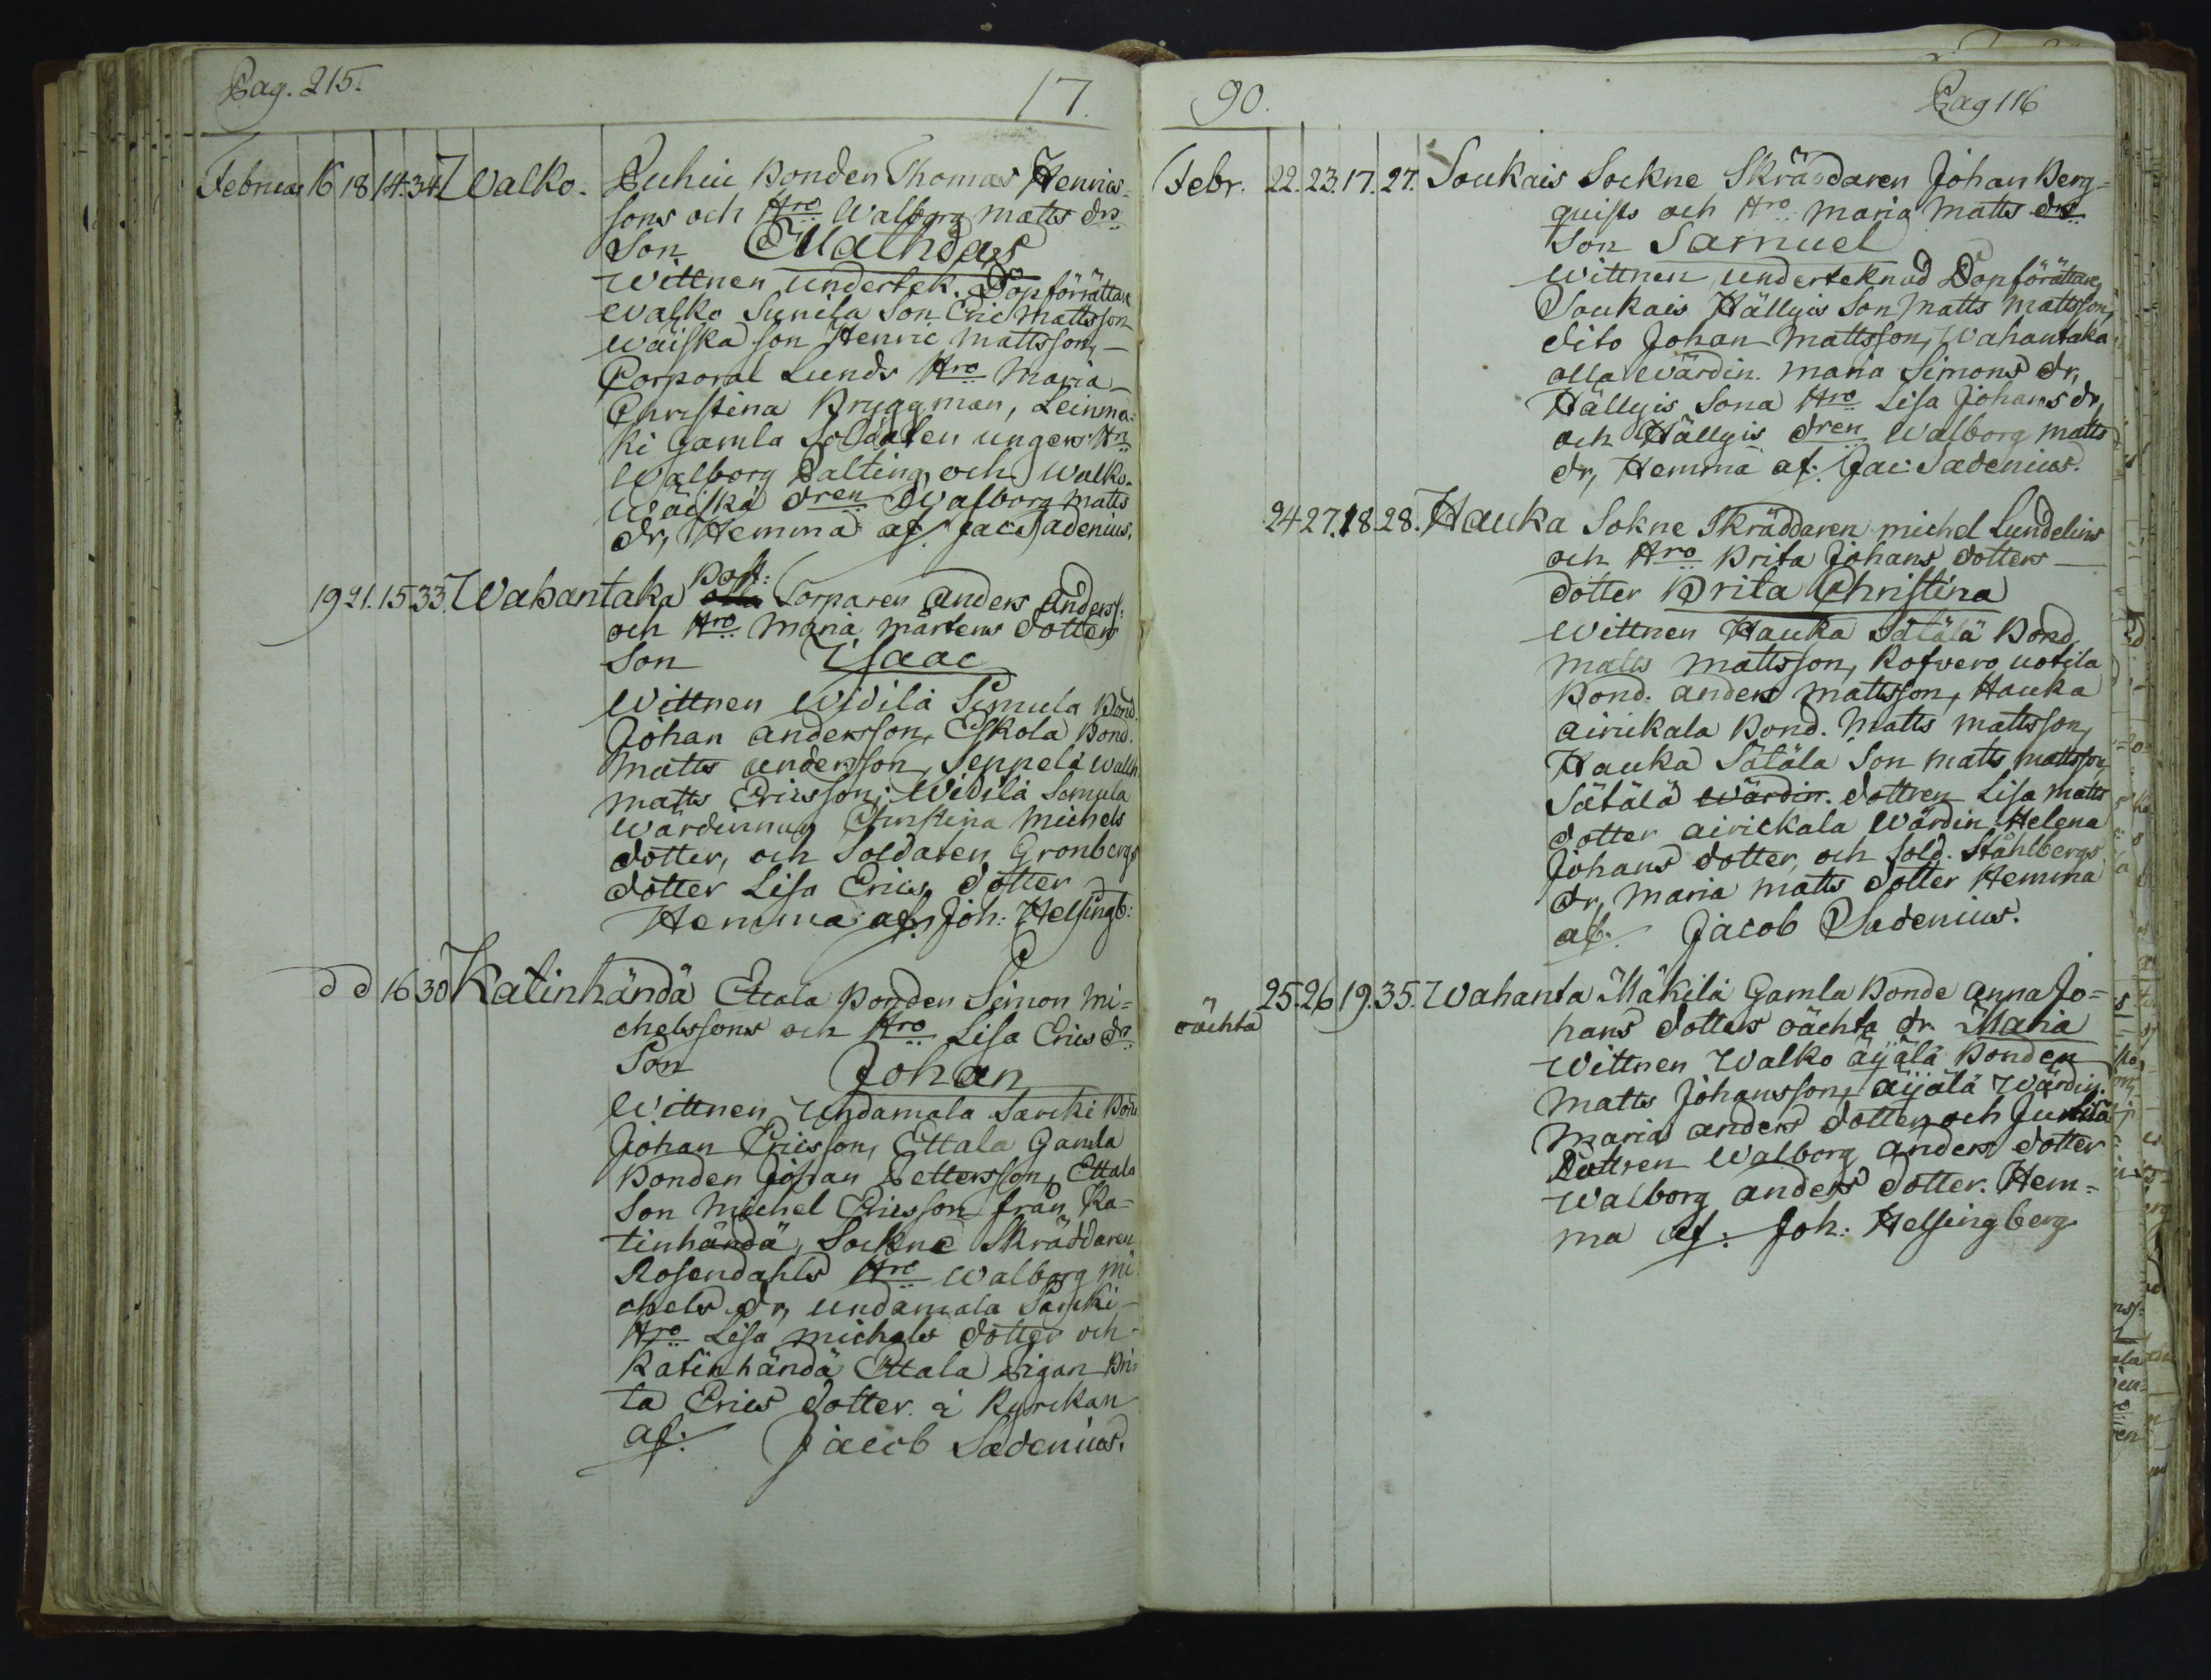 Pag. 215.
17
Februar 16 18 14. 34. Walko. Puhiu Bonden Thomas Henrics-
sons och Hro Walborg Matts drs
Son Mathdas
Wittnen undertek. Döpförrättare
Walko Sunila Son Eric Mattsson
Wäiskä son Henric Mattsson,
Corporal Lunds Hro Maria
Christina Bryggman, Leinmä-
ki Gamla Soldaten ungers Hro
Walborg Palting, och Walko
Wäiskä dren Walborg Matts
dr, Hemma af. Jac: Sadenius.
19 21. 15. 33. Wahantaka Båst: olla Torparen Anders Anderss:
och Hro Maria Mårtens dotters
Son Isaac
Wittnen Widilä Simula Bond.
Johan Andersson, Eskola Bond.
Matts Andersson, Seppelä
Matts Ericsson, Widilä Simula
Wärdinnan Christina Michels
dotter, och Soldaten Gronbergs
dotter Lisa Erics dotter
Hemma af. Joh: Helsingb:
d d 16 30 Katinhändä Ettala Bonden Simon Mi-
chelssons och Hro Lisa Erics dr
Son Johan
Wittnen Undamala Sarcki Bond
Johan Ericsson, Ettala Gamla
Bonden Johan Pettersson, Ettala
Son Michel Ericsson från Ka-
tinhändä, Sockne Skräddaren
Rosendahls Hro Walborg Mi-
chels dr, Undamala Sarcki
Hro Lisa Michels dotter och
Katinhändä Ettala Pigan Bri-
ta Erics dotter. i Kyrckan
af. Jacob Sadenius.
90.
Pag 116
Febr. 22. 23. 17. 27. Soukais Sockne Skräddaren Johan Berg-
quists och Hro Maria Matts drs
Son Samuel
Wittnen underteknad Döpförättare,
Soukais Hällyis Son Matts Mattsson,
dito Johan Mattsson, Wahantaka
olla Wärdin. Maria Simons dr,
Hällyis Sona Hro Lisa Johans dr,
och Hällyis dren Walborg Matts
dr, Hemma af. Jac: Sadenius.
24 27. 18. 28. Hauka Sokne Skräddaren Michel Lundelins
och Hro Brita Johans dotters
dotter Brita Christina
Wittnen Hauka Sätälä Bond
Matts Mattsson, Kofvero Uotila
Bond. Anders Mattsson, Hauka
Airickala Bond. Matts Mattsson,
Hauka Sätäla Son Matts Mattsson
Sätälä Wärdin. dottren Lisa Matts
dotter Airickala Wärdin. Helena
Johans dotter, och Sold. Ståhlbergs
dr, Maria Matts dotter Hemma
af. Jacob Sadenius.
25. 26 19. 35. Wahanta Mäkilä Gamla Bonde Anna Jo-
oächta
hans dotters oächta dr. Maria
Wittnen Walko äijälä Bonden
Matts Johansson, äijälä Wärdin.
Maria Anders dotter och Junkila
Dottren Walborg Anders dotter
Walborg Anders dotter. Hem-
ma af: Joh: Helsingberg